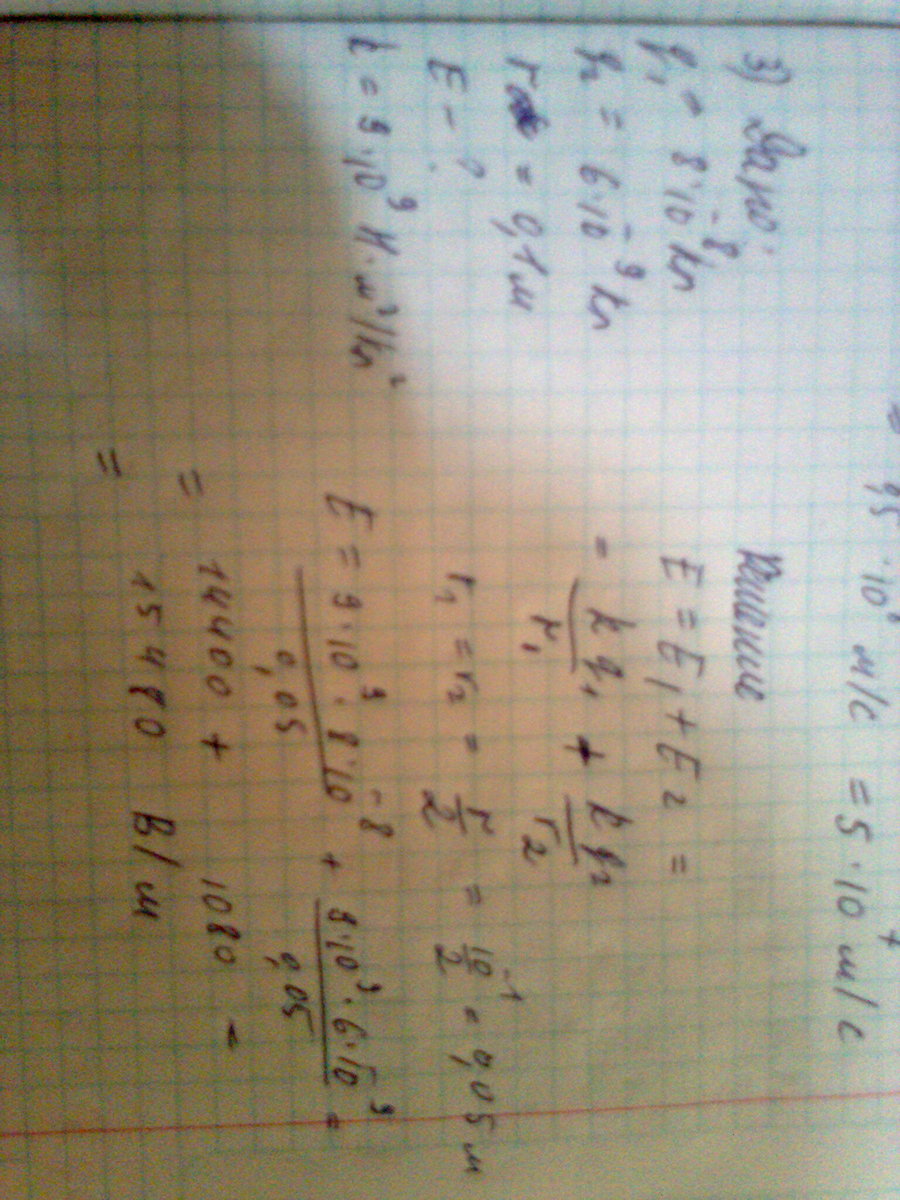 = 0,5 · 10⁸ м/с = 5 · 10⁷ м/с
3) Дано:
q₁ = 8·10⁻⁸ Кл
q₂ = 6·10⁻⁹ Кл
r = 0,1 м
E – ?
k = 9·10⁹ Н·м²/Кл²
Решение
E = E₁ + E₂ =
= kq₁/r₁ + kq₂/r₂
r₁ = r₂ = r/2 = 10⁻¹/2 = 0,05 м
E = 9·10⁹·8·10⁻⁸/0,05 + 9·10⁹·6·10⁻⁹/0,05 =
= 14400 + 1080 =
= 15480 В/м